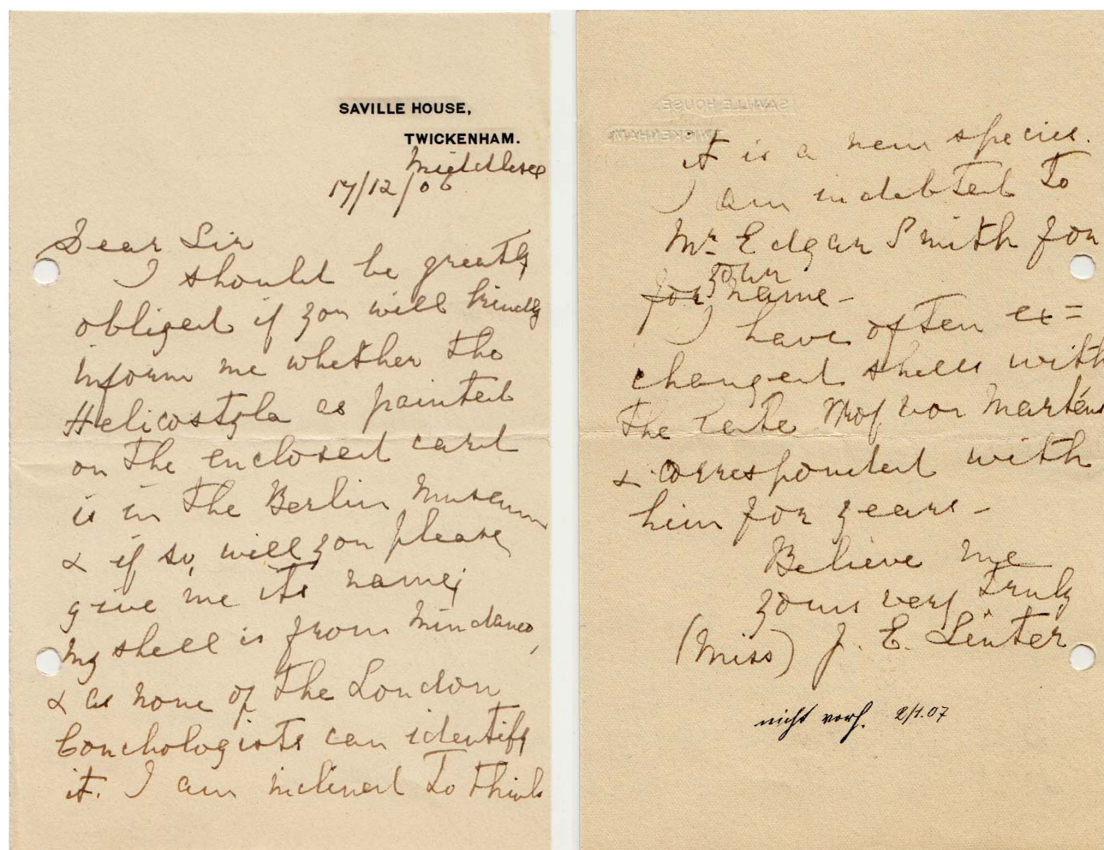 SAVILLE HOUSE,
TWICKENHAM.
Middlesex
17/12/06
Dear Sir
I should be greatly
obliged if you will kindly
inform me whether the
Helicostyla as painted
on the enclosed card
is in the Berlin Museum
& if so, will you please
give me its name;
My shell is from Mindanao,
& as none of the London
Conchologists can identify
it. I am inclined to think
it is a new species.
I am indebted to
Mr Edgar Smith for
your
for name -
I have often ex=
changed shells with
the late Prof von Martens
& corresponded with
him for years -
Believe me
yours very truly
(Miss) J. E. Linter
nicht vorh. 2/1.07